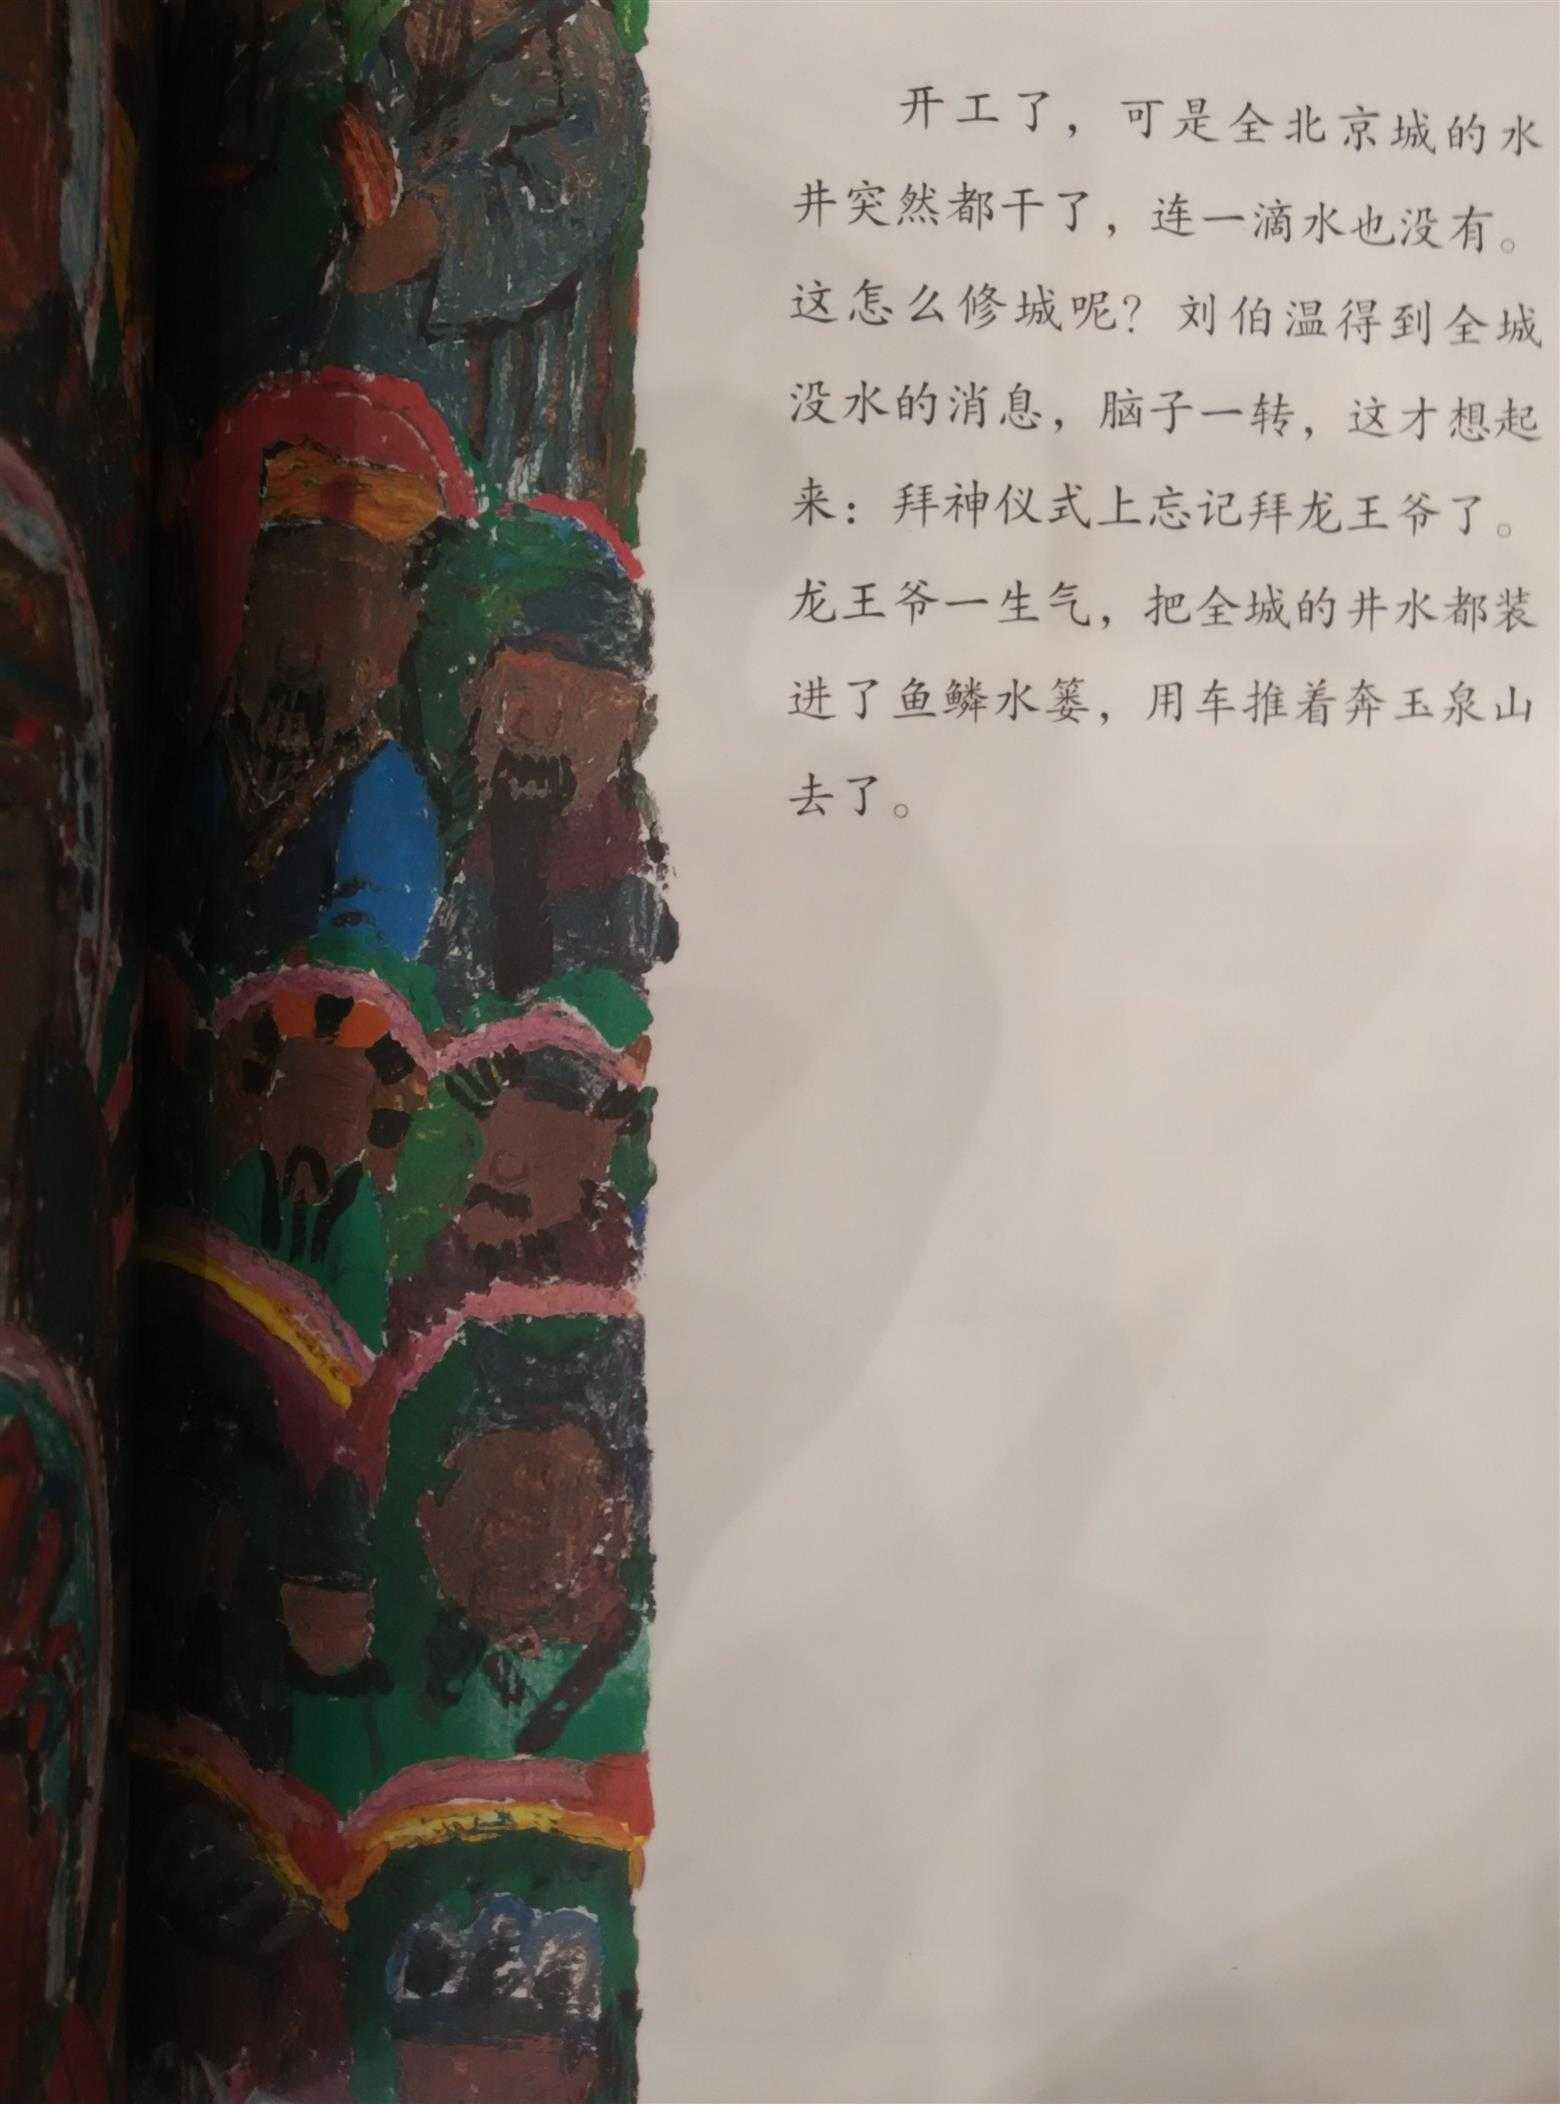 开工了，可是全北京城的水
井突然都干了，连一滴水也没有。
这怎么修城呢？刘伯温得到全城
没水的消息，脑子一转，这才想起
来：拜神仪式上忘记拜龙王爷了。
龙王爷一生气，把全城的井水都装
进了鱼鳞水篓，用车推着奔玉泉山
去了。